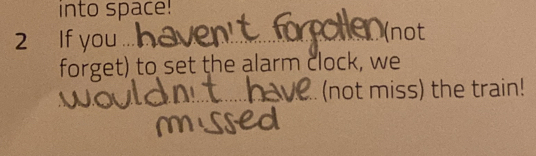 into space!
2 If you haven't forgotten (not
forget) to set the alarm clock, we
wouldn't have (not miss) the train!
missed